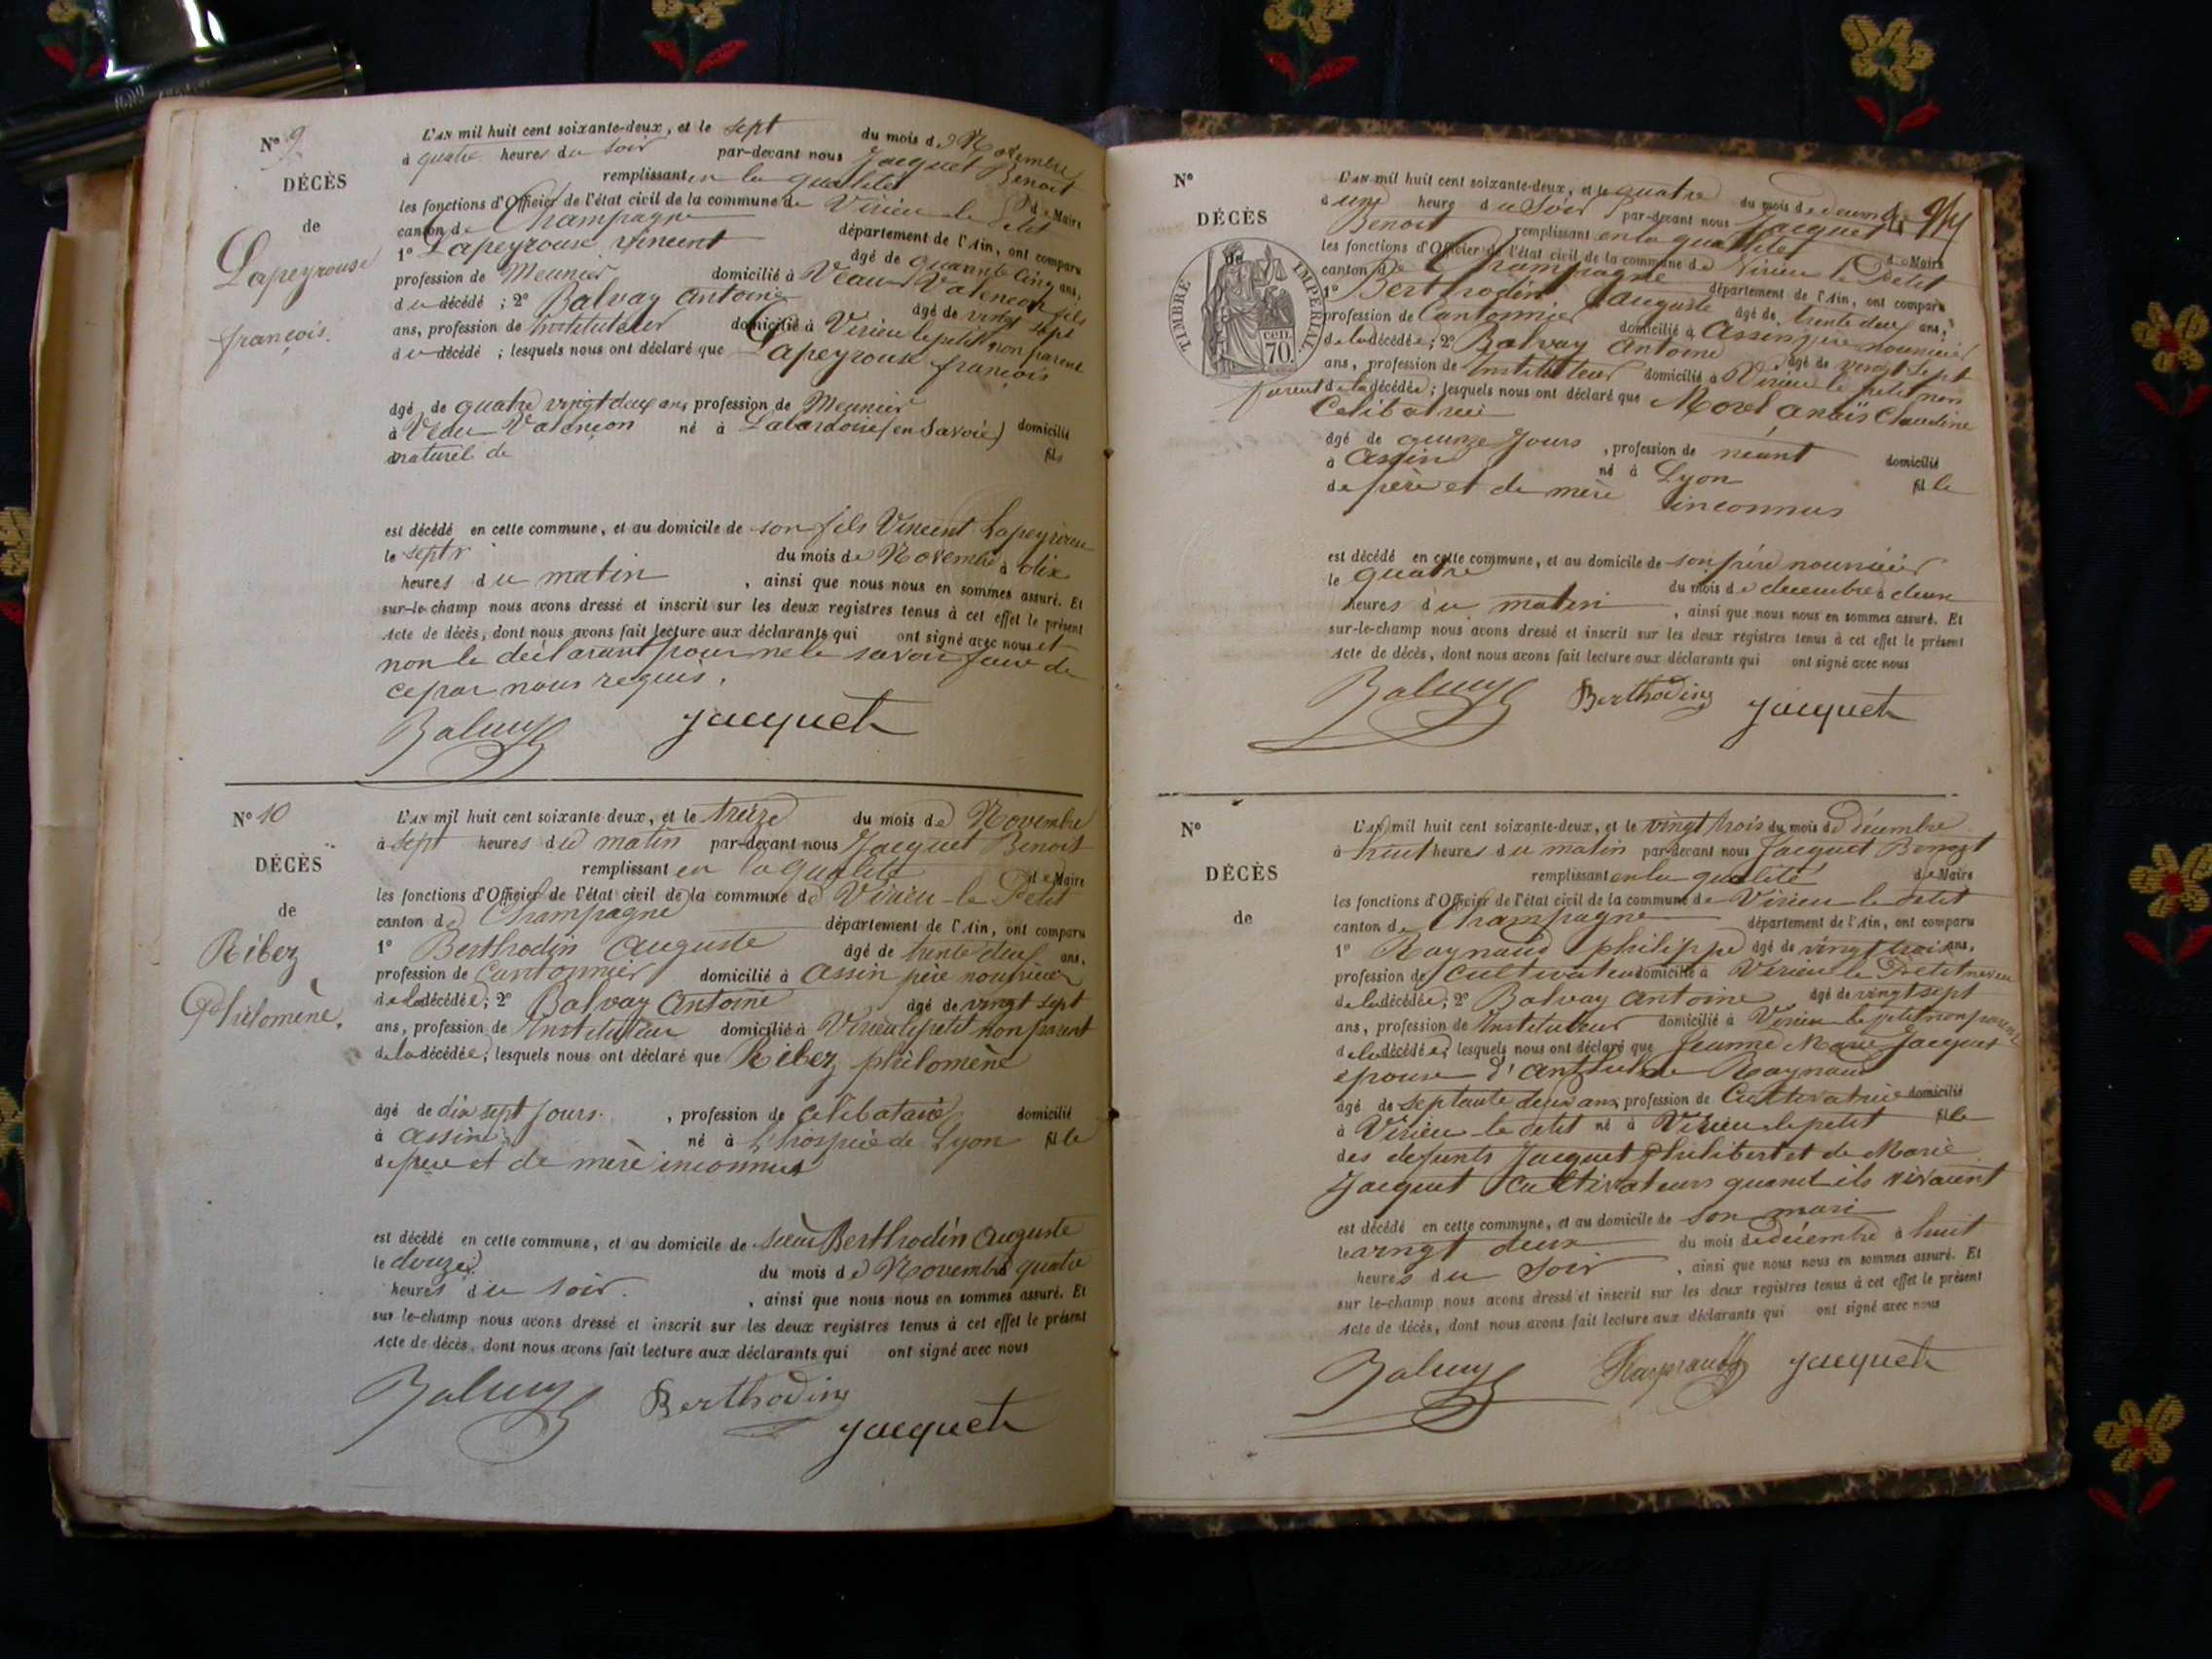 N° 9
DÉCÈS
de
Lapeyrouse
françois.
L'AN mil huit cent soixante-deux, et le sept du mois de Novembre
à quatre heures du soir par-devant nous Jacquet Benoit
remplissant en la qualité de Maire
les fonctions d'Officier de l'état civil de la commune de Virieu le Petit
canton de Champagne département de l'Ain, ont comparu
1° Lapeyrouse Vincent âgé de quarante cinq ans,
profession de Meunier domicilié à Veau Valençon fils
du décédé ; 2° Balvay Antoine âgé de vingt sept
ans, profession de Instituteur domicilié à Virieu le petit non parent
du décédé ; lesquels nous ont déclaré que Lapeyrouse françois
âgé de quatre vingt deux ans, profession de Meunier domicilié
à Veau Valençon né à (en Savoie) fils
naturel de
est décédé en cette commune, et au domicile de son fils Vincent Lapeyrouse
le sept du mois de Novembre à dix
heures du matin , ainsi que nous nous en sommes assuré. Et
sur-le-champ nous avons dressé et inscrit sur les deux registres tenus à cet effet le présent
Acte de décès, dont nous avons fait lecture aux déclarants qui ont signé avec nous et
non le déclarant pour ne le savoir faire de
ce par nous requis.
Balvay Jacquet
N° 10
DÉCÈS
de
Ribez
Philomène.
L'AN mil huit cent soixante deux, et le treize du mois de Novembre
à sept heures du matin par-devant nous Jacquet Benoit
remplissant en la qualité de Maire
les fonctions d'Officier de l'état civil de la commune de Virieu-le-Petit
canton de Champagne département de l'Ain, ont comparu
1° Berthodin Auguste âgé de trente deux ans,
profession de Cantonnier domicilié à Assin père nourricier
de la décédée; 2° Balvay Antoine âgé de vingt sept
ans, profession de Instituteur domicilié à Virieu le petit non parent
de la décédée; lesquels nous ont déclaré que Ribez philomène
âgé de dix sept jours , profession de célibataire domicilié
à Assin né à L'hospice de Lyon fille
de père et de mère inconnus
est décédé en cette commune, et au domicile de Berthodin Auguste
le douze du mois de Novembre quatre
heures du soir. , ainsi que nous nous en sommes assuré. Et
sur le-champ nous avons dressé et inscrit sur les deux registres tenus à cet effet le présent
Acte de décès, dont nous avons fait lecture aux déclarants qui ont signé avec nous
Balvay Berthodin
Jacquet
N°
DÉCÈS
de
TIMBRE IMPÉRIAL
CEN.
70.
L'AN mil huit cent soixante-deux, et le quatre du mois de décembre
à une heure du Soir par-devant nous Jacquet
Benoit remplissant en la qualité de Maire
les fonctions d'Officier de l'état civil de la commune de Virieu le Petit
canton de Champagne département de l'Ain, ont comparu
1° Berthodin Auguste âgé de trente deux ans,
profession de Cantonnier domicilié à Assin père nourricier
de la décédée; 2° Balvay Antoine âgé de vingt sept
ans, profession de Instituteur domicilié à Virieu le petit non
parent de la décédée; lesquels nous ont déclaré que Morel anaïs Claudine
Celibatrice
âgé de quinze Jours , profession de néant domicilié
à Assin né à Lyon fille
de père et de mère inconnus
est décédé en cette commune, et au domicile de son père nourricier
le quatre du mois de decembre à deux
heures du matin , ainsi que nous nous en sommes assuré. Et
sur-le-champ nous avons dressé et inscrit sur les deux registres tenus à cet effet le présent
Acte de décès, dont nous avons fait lecture aux déclarants qui ont signé avec nous
Balvay Berthodin Jacquet
N°
DÉCÈS
de
L'AN mil huit cent soixante-deux, et le vingt trois du mois de décembre
à huit heures du matin par-devant nous Jacquet Benoit
remplissant en la qualité de Maire
les fonctions d'Officier de l'état civil de la commune de Virieu le Petit
canton de Champagne département de l'Ain, ont comparu
1° Raynaud philippe âgé de vingt trois ans,
profession de Cultivateur domicilié à Virieu le Petit neveu
de la décédée; 2° Balvay Antoine âgé de vingt sept
ans, profession de Instituteur domicilié à Virieu le petit non parent
de la décédée; lesquels nous ont déclaré que Jeanne Marie Jacquet
épouse d'Anthelme Raynaud
âgé de septante deux ans, profession de Cultivatrice domicilié
à Virieu-le-Petit né à Virieu le petit fille
des defunts Jacquet Philibert et de Marie
Jacquet Cultivateurs quand ils vivaient
est décédé en cette commune, et au domicile de son mari
le vingt deux du mois de décembre à huit
heures du Soir , ainsi que nous nous en sommes assuré. Et
sur le-champ nous avons dressé et inscrit sur les deux registres tenus à cet effet le présent
Acte de décès, dont nous avons fait lecture aux déclarants qui ont signé avec nous
Balvay Raynaud Jacquet